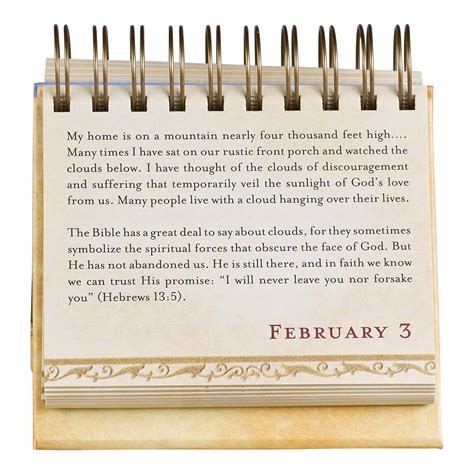 My home is on a mountain nearly four thousand feet high....
Many times I have sat on our rustic front porch and watched the
clouds below. I have thought of the clouds of discouragement
and suffering that temporarily veil the sunlight of God's love
from us. Many people live with a cloud hanging over their lives.
The Bible has a great deal to say about clouds, for they sometimes
symbolize the spiritual forces that obscure the face of God. But
He has not abandoned us. He is still there, and in faith we know
we can trust His promise: "I will never leave you nor forsake
you" (Hebrews 13:5).
February 3